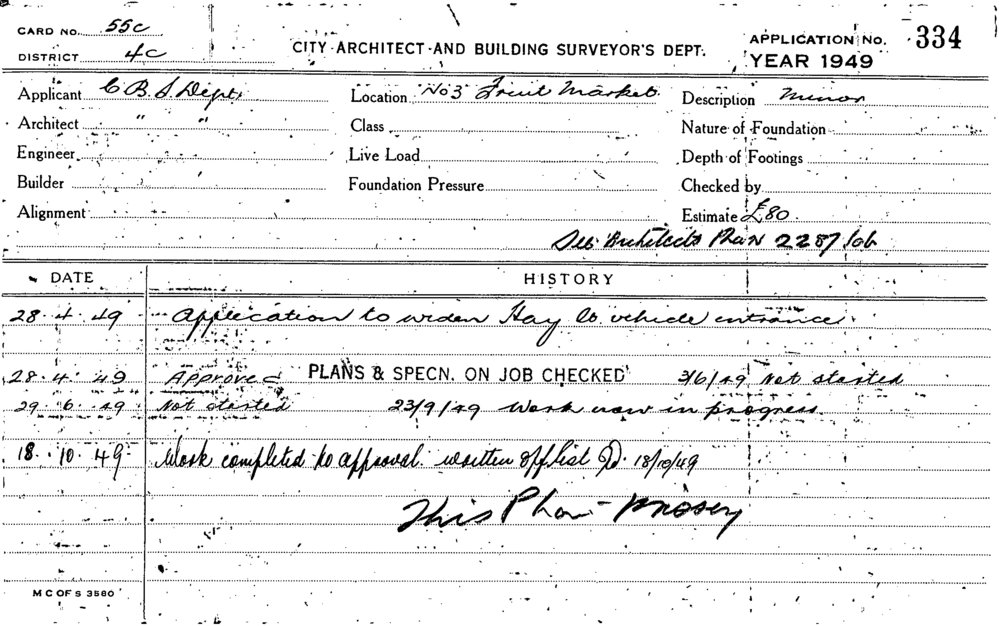 CARD NO. 55c
DISTRICT 4C
CITY ARCHITECT AND BUILDING SURVEYOR'S DEPT.
APPLICATION NO. 334
YEAR 1949
Applicant C B S Dept
Location No 3 Fruit Market
Description Minor
Architect " "
Class
Nature of Foundation
Engineer
Live Load
Depth of Footings
Builder
Foundation Pressure
Checked by
Alignment
Estimate £80
See Architects Plan 2287 Job
DATE HISTORY
28.4.49 Application to widen Hay St. vehicle entrance.
28.4.49 Approved PLANS & SPECN. ON JOB CHECKED 3/6/49 Not started
29.6.49 Not started 23/9/49 Work now in progress.
18.10.49 Work completed to approval. written off list 18/10/49
This Plan Missing
M C OF S 3580